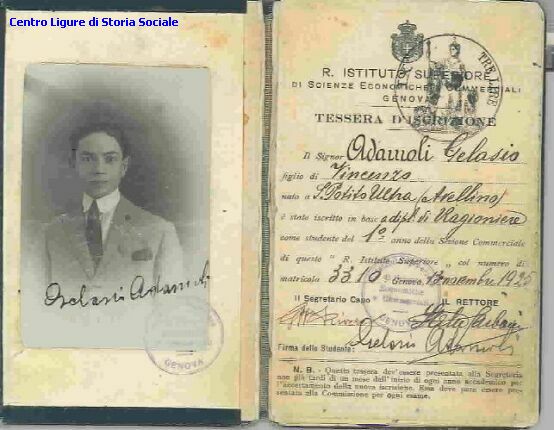 Centro Ligure di Storia Sociale
Gelasio Adamoli
GENOVA
TRE LIRE
R. ISTITUTO SUPERIORE
DI SCIENZE ECONOMICHE E COMMERCIALI
GENOVA
TESSERA D'ISCRIZIONE
Il Signor Adamoli Gelasio
figlio di Vincenzo
nato a S. Potito Ultra (Avellino)
è stato iscritto in base a dipl. di Ragioniere
come studente del 1º anno della Sezione Commerciale
di questo "R. Istituto Superiore" col numero di
matricola 3310 Genova, 1925
Il Segretario Capo IL RETTORE
GENOVA
Firma dello Studente: Gelasio Adamoli
N. B. - Questa tessera dev'essere presentata alla Segreteria
non più tardi di un mese dall'inizio di ogni anno accademico per
l'accertamento della nuova iscrizione. Essa deve pure essere pre-
sentata alla Commissione per ogni esame.